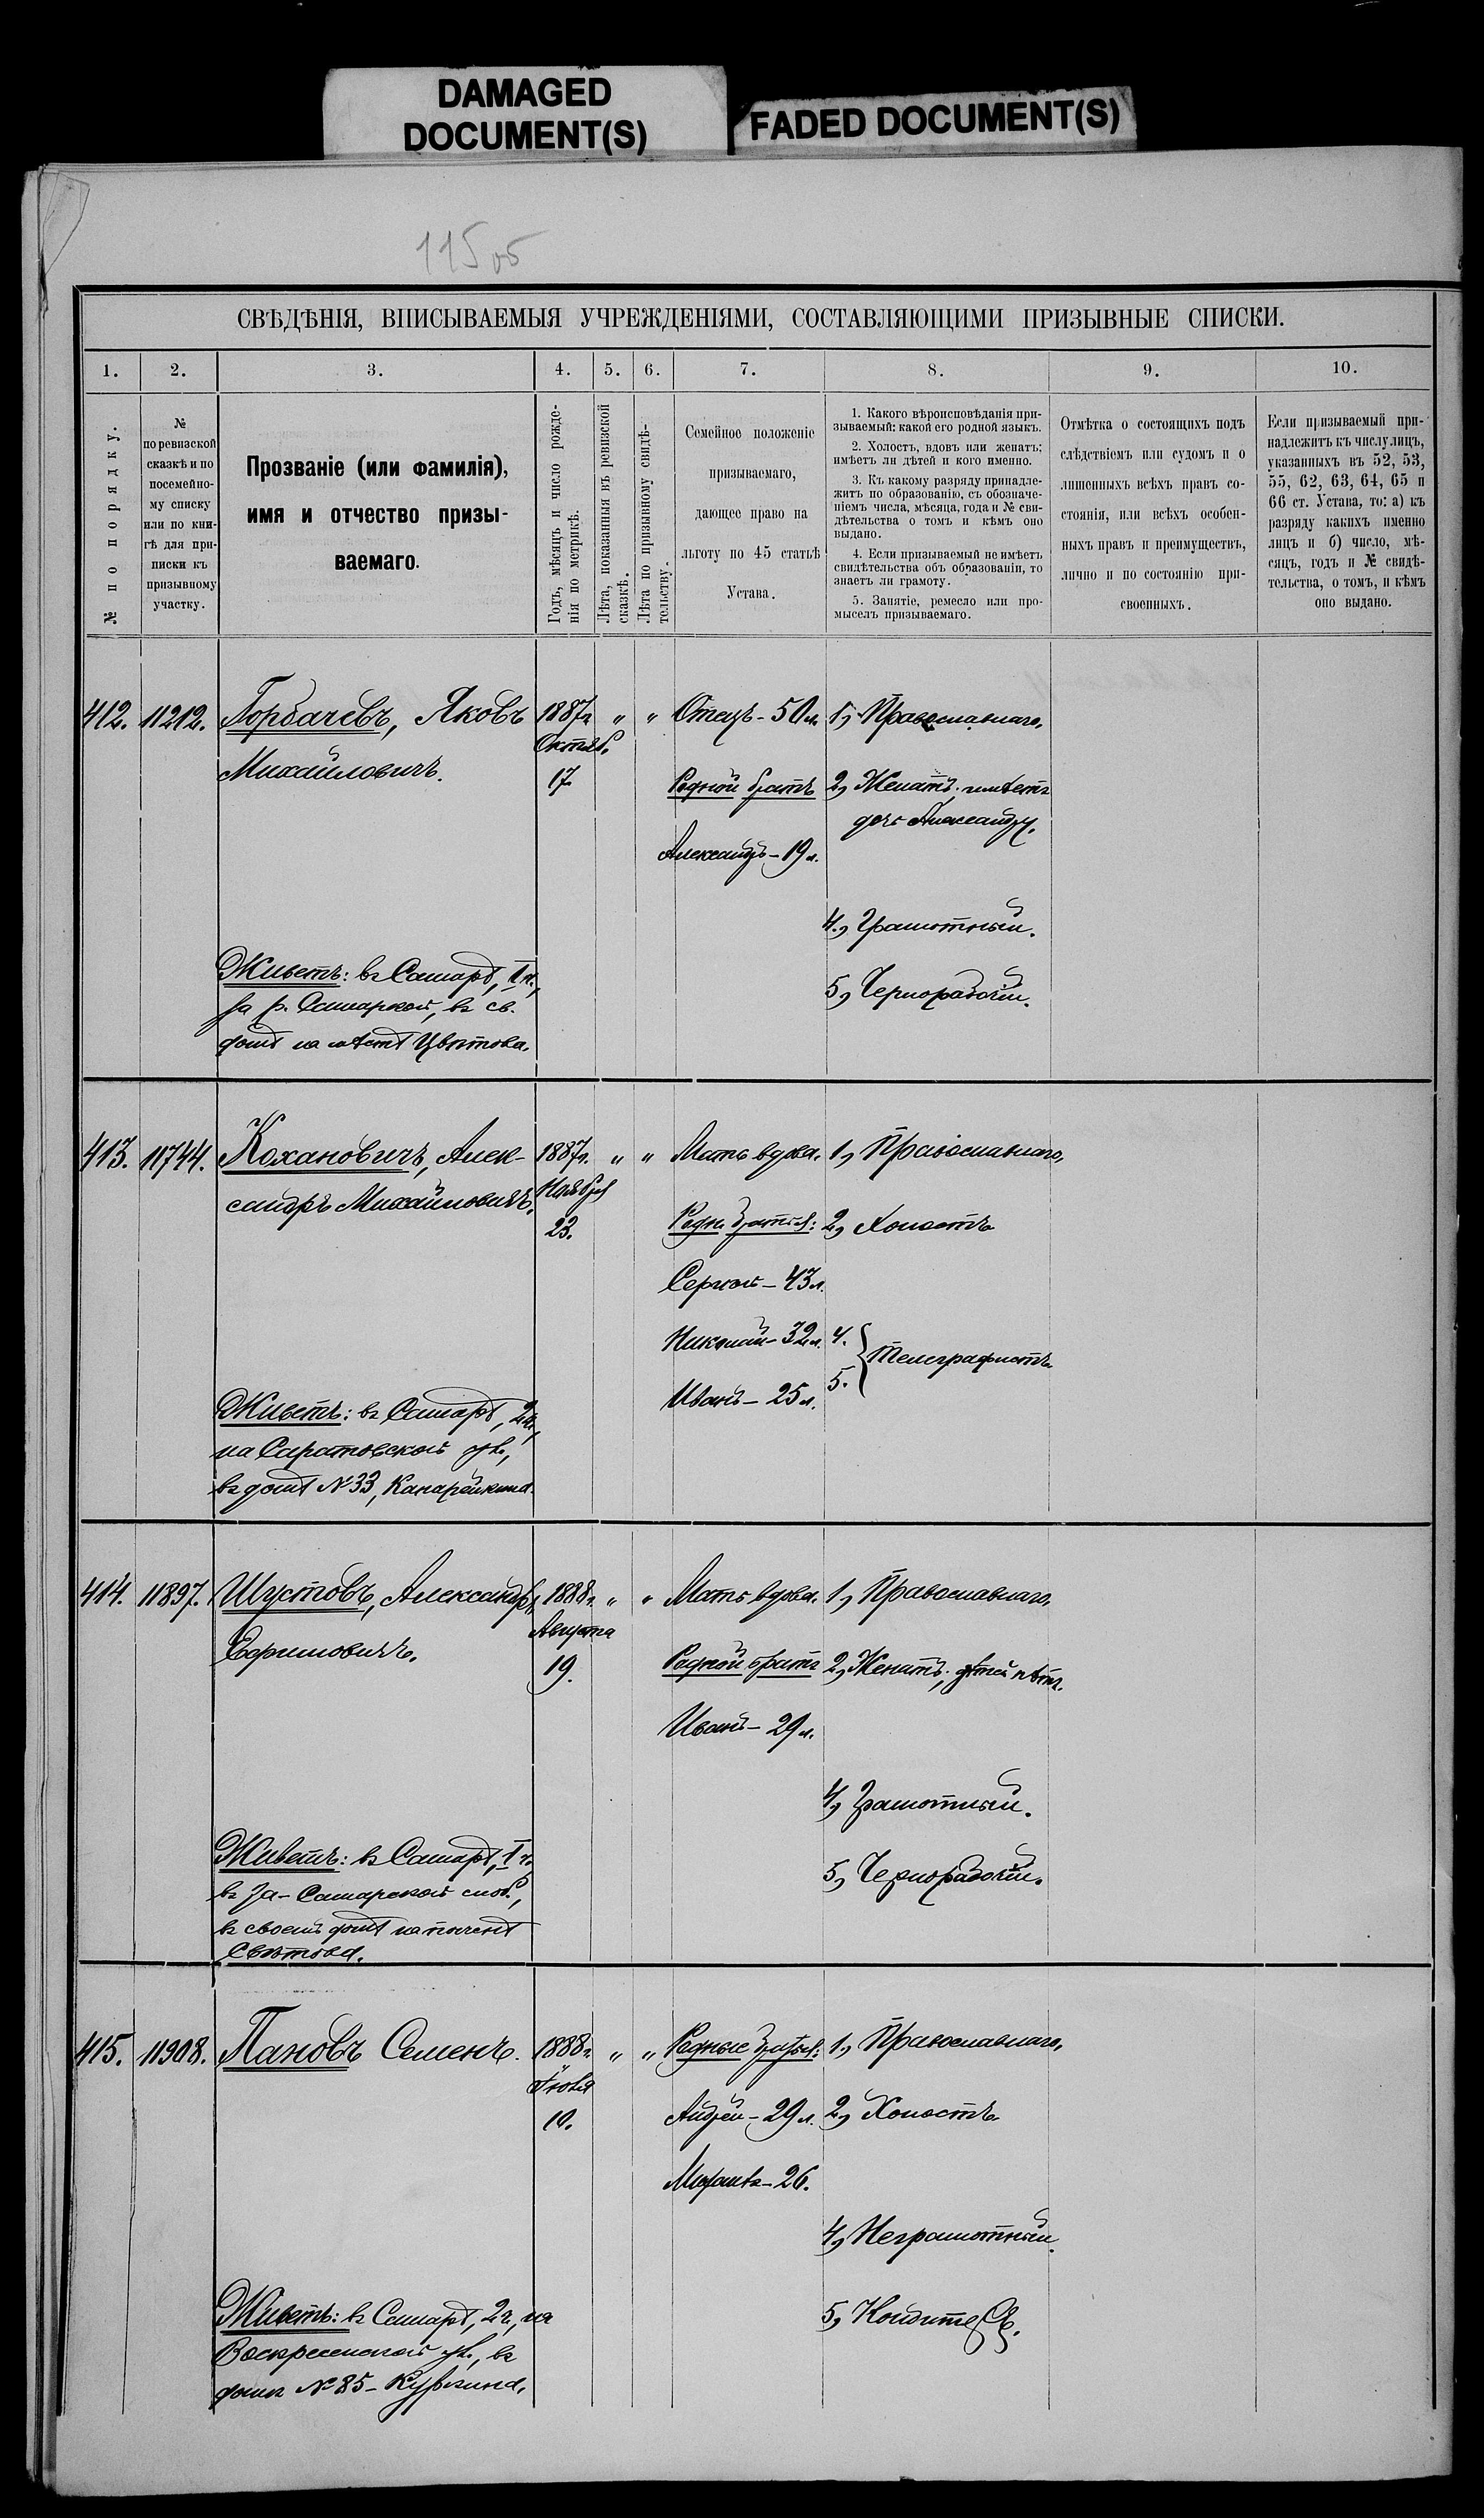 DAMAGED
DOCUMENT(S)
FADED DOCUMENT(S)
115 об
СВѢДѢНІЯ, ВПИСЫВАЕМЫЯ УЧРЕЖДЕНІЯМИ, СОСТАВЛЯЮЩИМИ ПРИЗЫВНЫЕ СПИСКИ.
1. 2. 3. 4. 5. 6. 7. 8. 9. 10.
№ по порядку.
№
по ревизской
сказкѣ и по
посемейно-
му списку
или по кни-
гѣ для при-
писки къ
призывному
участку.
Прозваніе (или фамилія),
имя и отчество призы-
ваемаго.
Годъ, мѣсяцъ и число рожде-
нія по метрикѣ.
Лѣта, показанныя въ ревизской
сказкѣ.
Лѣта по призывному свидѣ-
тельству.
Семейное положеніе
призываемаго,
дающее право на
льготу по 45 статьѣ
Устава.
1. Какого вѣроисповѣданія при-
зываемый: какой его родной языкъ.
2. Холостъ, вдовъ или женатъ;
имѣетъ ли дѣтей и кого именно.
3. Къ какому разряду принадле-
житъ по образованію, съ обозначе-
ніемъ числа, мѣсяца, года и № сви-
дѣтельства о томъ и кѣмъ оно
выдано.
4. Если призываемый не имѣетъ
свидѣтельства объ образованіи, то
знаетъ ли грамоту.
5. Занятіе, ремесло или про-
мыселъ призываемаго.
Отмѣтка о состоящихъ подъ
слѣдствіемъ или судомъ и о
лишенныхъ всѣхъ правъ со-
стоянія, или всѣхъ особен-
ныхъ правъ и преимуществъ,
лично и по состоянію при-
своенныхъ.
Если призываемый при-
надлежитъ къ числу лицъ,
указанныхъ въ 52, 53,
55, 62, 63, 64, 65 и
66 ст. Устава, то: а) къ
разряду какихъ именно
лицъ и б) число, мѣ-
сяцъ, годъ и № свидѣ-
тельства, о томъ, и кѣмъ
оно выдано.
412. 11212. Горбачевъ, Яковъ 1887г. " " Отецъ - 50 л. 1, Православнаго,
Октяб.
Михайловичъ. 17 Родной братъ 2, Женатъ; имѣетъ
дочь Александру.
Александръ - 19 л.
4., Грамотный.
Живетъ: въ Самарѣ, 1 ч., 5, Чернорабочій.
за р. Самаркой, въ св.
домѣ на мѣстѣ Цвѣтова.
413. 11744. Кохановичъ, Алек- 1887г. " " Мать вдова. 1, Православнаго,
Ноября
сандръ Михайловичъ. 23. Родн. братья: 2, Холостъ
Сергѣй - 43 л.
Николай - 32 л. 4.
Телеграфистъ
Иванъ - 25 л. 5.
Живетъ: въ Самарѣ, 2 ч.,
на Саратовской ул.,
въ домѣ № 33, Канарейкина.
414. 11897. Шустовъ, Александръ 1888г. " " Мать вдова. 1, Православнаго.
Августа
Ефимовичъ. 19. Родной братъ 2, Женатъ; дѣтей нѣтъ.
Иванъ - 29 л.
4, Грамотный.
Живетъ: въ Самарѣ, 1 ч. 5, Чернорабочій.
въ За-Самарской слоб.,
въ своемъ домѣ на
Свѣтова.
415. 11908. Пановъ Семенъ. 1888г. " " Родные братья: 1, Православнаго,
10. Андрей - 29 л. 2, Холостъ
Михаилъ - 26.
4, Неграмотный.
Живетъ: въ Самарѣ, 2 ч., на 5,
Воскресенской ул., въ
домѣ № 85 -